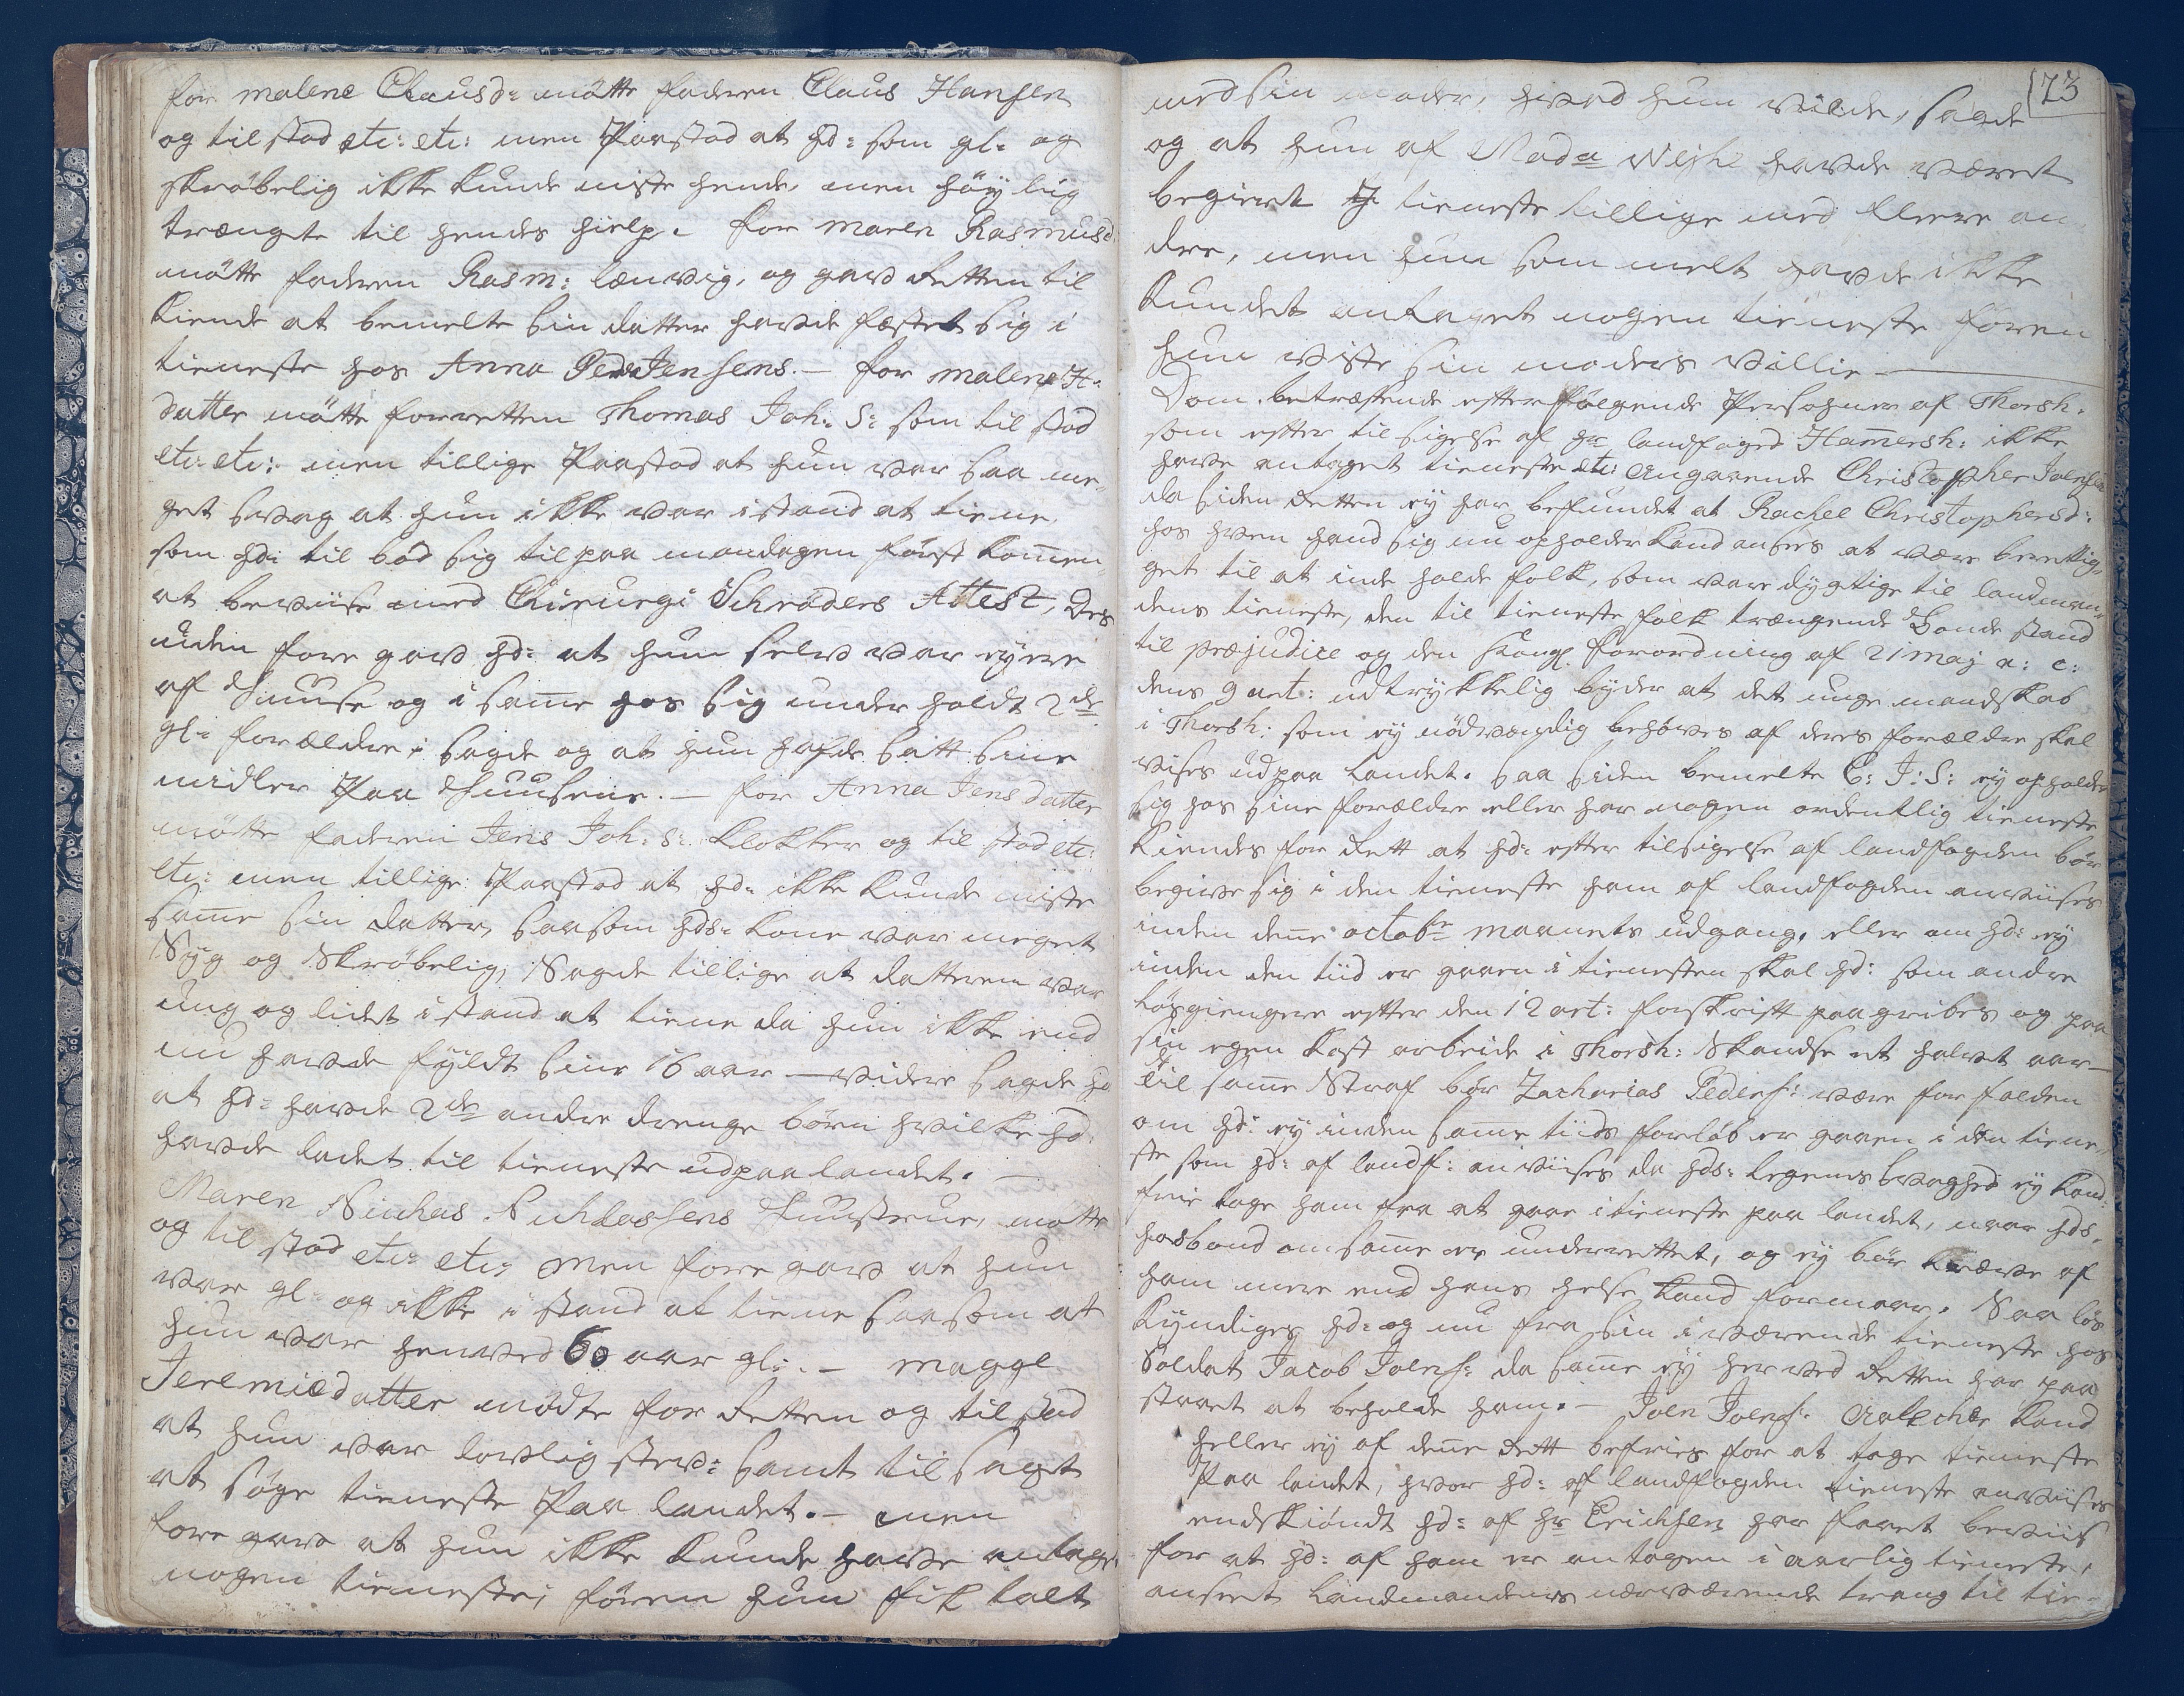 for Malene Clausd: mötte faderen Claus Hansen
og tilstod etc: etc: men Paastod at hd: som gl: og
skröbelig ikke kunde miste hende, men höÿlig
trængte til hendes hielp. for Maren Rasmusd:
mötte faderen Rasm: Lænvig, og gav Retten til
kiende at bemelte sin datter havde fæstet sig i
tieneste hos Anna Jensens. – for Malene H:
datter mötte for retten Thomas Joh: S: som tilstod
etc: etc: men tillige Paastod at hun var saa me-
get svag at hun ikke var i stand at tiene,
som hd: tilbød sig til paa mandagen först kommen,
at beviise med Chirurgi Schröders Attest, Des
uden foregav hd: at hun selv var eÿere
af Huuse og i samme hos sig underholdt 2de
gl: forældre, sagde og at hun hafde satt sine
midler Paa Huusene. – for Anna Jensdatter
mötte faderen Jens Joh: S: Klokker og tilstod etc:
etc: men tillige Paastod at hd: ikke kunde miste
samme sin datter, saasom hds: kone var meget
Sÿg og Skröbelig, Sagde tillige at datteren var
ung og lidet i stand at tiene da hun ikke end
nu havde fÿldt sine 16 aar – videre sagde hd
at hd: havde 2de andre drenge börn hvilke hd:
havde ladet til tieneste ud paa landet. –
Maren Niclas Niclassens Huustrue, mötte
og tilstod etc: etc: men foregav at hun
var gl: og ikke i stand at tiene saasom at
hun var henved 60 aar gl: – Magge
Jeremiædatter mödte for Retten og tilstod
at hun var lovlig stev: samt tilsagt
at söge tieneste Paa landet. – men
foregav at hun ikke kunde have antaget
nogen tieneste, fören hun fik talt
73
med sin moder, hvad hun vilde, sagde
og at hun af Mada Wejhe havde været
begiert I tieneste tillige med fleere an
dre, men hun som melt havde ikke
kundet antaget nogen tieneste fören
hun viste sin moders villie –
Dom. betræffende efterfölgende Persohner af Thorsh.
som efter tilsigelse af hr landfoged Hamersh: ikke
have antaget tieneste etc: Angaaende Christopher Joensen
da siden Retten eÿ har befundet at Rachel Christophersd:
hos hvem hand sig nu opholder kand ansees at være berettig-
get til at inde holde folk, som vare dÿgtige til landman-
dens tieneste, den til tieneste folk trængende Bondestand
til præjudice og den Kongl. Forordning af 21 Maj a: c:
dens 9 art: udtrÿkkelig bÿder at det unge mandskab
i Thorsh: som eÿ nödvendig behöves af deres forældre skal
vises ud paa landet. saa siden bemelte C: J: S: eÿ opholder
sig hos sine forældre eller har nogen ordentlig tieneste
kiendes for Rett at hd: efter tilsigelse af landfogden bör
begive sig i den tieneste ham af landfogden anviises
inden denne octobr maanets udgang, eller om hd: eÿ
inden den tiid er gaaen i tienesten skal hd: som andre
lösgiengere efter den 12 art: forskrift paagribes og paa
sin egen kost arbeide i Thorsh: Skandse et halvt aar –
til samme Straf bör Zacharias Peders: være forfalden
om hd: eÿ inden samme tiids forlöb er gaaen i den tiene-
ste som hd: af landf: anviises da hds: legems svaghed eÿ kand
frie tage ham fra at gaae i tieneste paa landet, naar hds:
hosbond om samme er underrettet, og eÿ bör kræve af
ham mere end hans helse kand formaar. Saa lös
kÿndiges hd: og nu fra sin i værende tieneste hos
Soldat Jacob Joens: da samme eÿ her ved Retten har paa
staaet at beholde ham. – Joen Joens: kand
heller eÿ af denne Rett befries for at tage tieneste
Paa landet, hvor hd: af landfogden tieneste anviises
endskiöndt hd: af hr Erichsen har faaet beviis
for at hd: af ham er antagen i aarlig tieneste,
anseet landmandens nærværende trang til tie-